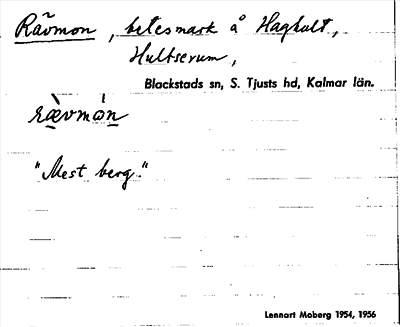 Rävmon, betesmark å Haghult,
Hultserum,
Blackstads sn, S. Tjusts hd, Kalmar län.
rævmón
"Mest berg."
Lennart Moberg 1954, 1956